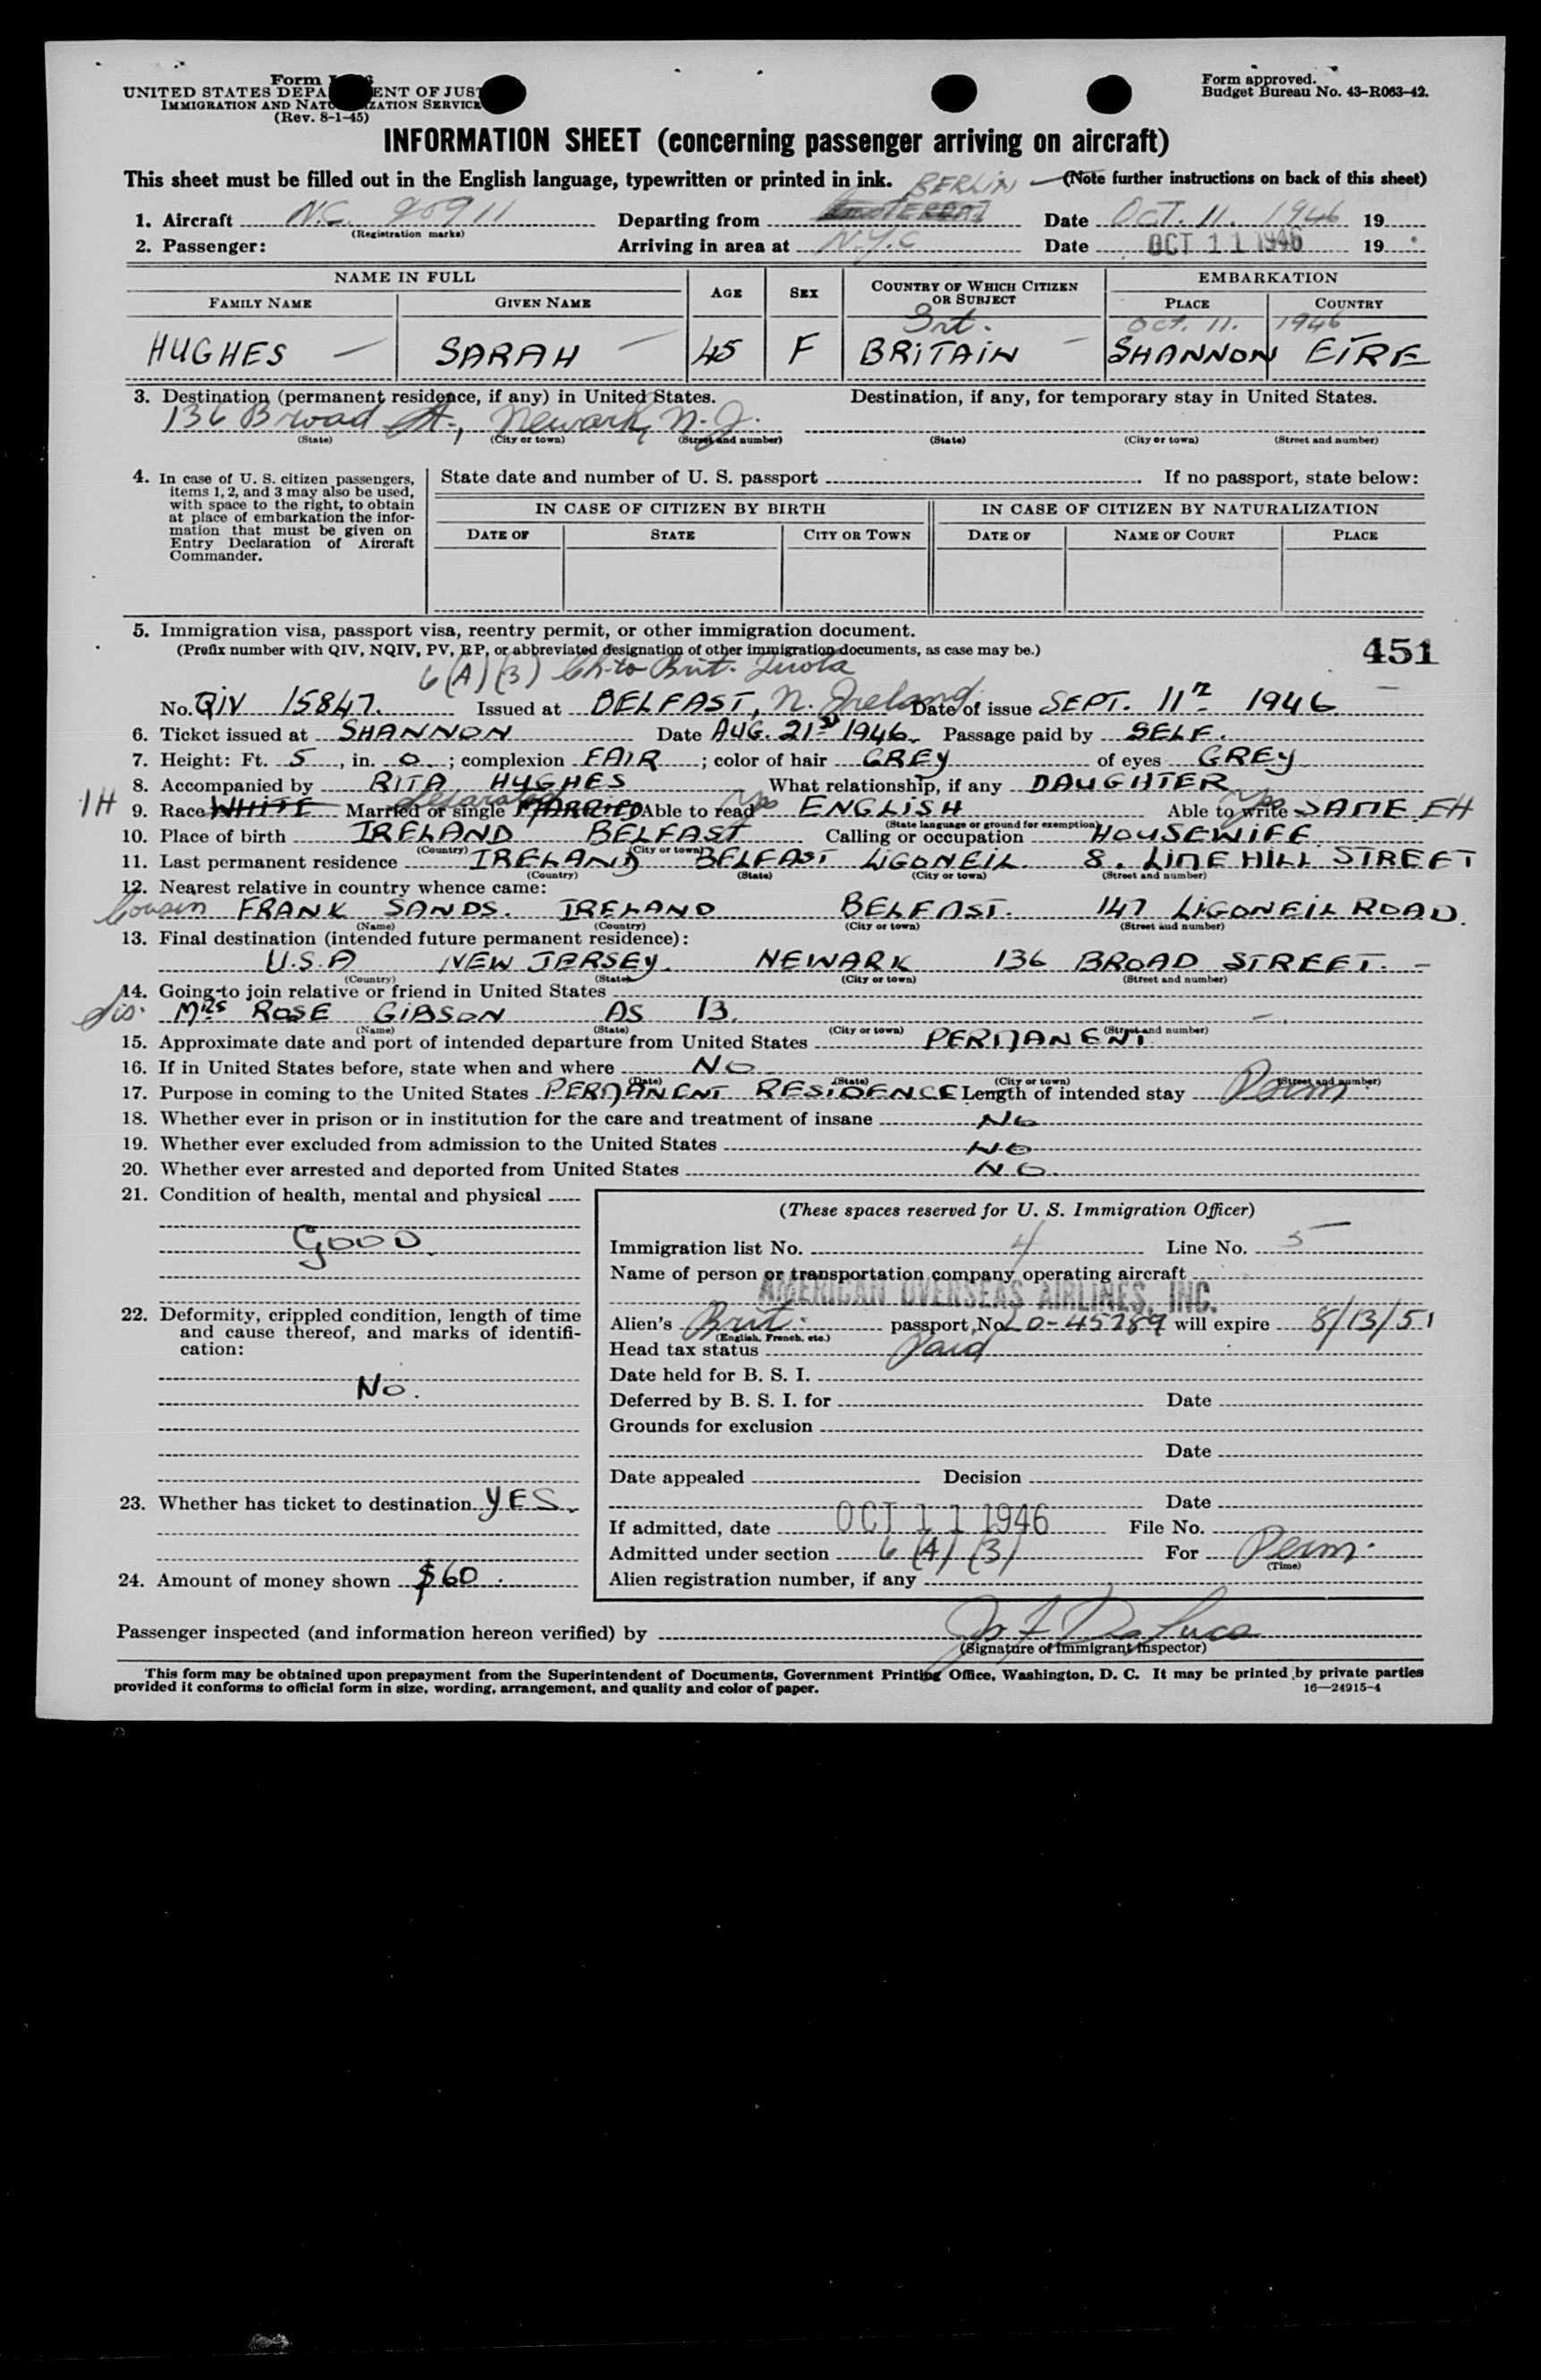 Form
UNITED STATES DEPA ENT OF JUS
IMMIGRATION AND NATU IZATION SERVICE
(Rev. 8-1-45)
Form approved.
Budget Bureau No. 43-R063-42.
INFORMATION SHEET (concerning passenger arriving on aircraft)
This sheet must be filled out in the English language, typewritten or printed in ink. (Note further instructions on back of this sheet)
BERLIN
1. Aircraft N.C. 90911 Departing from Date OCT. 11. 1946 19
(Registration marks)
2. Passenger: Arriving in area at N.Y.C Date OCT 11 1946 19
NAME IN FULL AGE SEX COUNTRY OF WHICH CITIZEN OR SUBJECT EMBARKATION
FAMILY NAME GIVEN NAME PLACE COUNTRY
Brt. Oct. 11. 1946
HUGHES — SARAH — 45 F BRITAIN — SHANNON EIRE
3. Destination (permanent residence, if any) in United States. Destination, if any, for temporary stay in United States.
136 Broad St., Newark, N.J.
(State) (City or town) (Street and number) (State) (City or town) (Street and number)
4. In case of U. S. citizen passengers, items 1, 2, and 3 may also be used, with space to the right, to obtain at place of embarkation the information that must be given on Entry Declaration of Aircraft Commander.
State date and number of U. S. passport If no passport, state below:
IN CASE OF CITIZEN BY BIRTH IN CASE OF CITIZEN BY NATURALIZATION
DATE OF STATE CITY OR TOWN DATE OF NAME OF COURT PLACE
5. Immigration visa, passport visa, reentry permit, or other immigration document.
(Prefix number with QIV, NQIV, PV, RP, or abbreviated designation of other immigration documents, as case may be.)
451
6(A)(3) Ch. to Brit. Quota
No. QIV 15847. Issued at BELFAST, N. Ireland. Date of issue SEPT. 11 1946
6. Ticket issued at SHANNON Date AUG. 21st 1946. Passage paid by SELF.
7. Height: Ft. 5, in. 0; complexion FAIR; color of hair GREY of eyes GREY
8. Accompanied by RITA HUGHES What relationship, if any DAUGHTER
1H
9. Race WHITE Married or single MARRIED Separated Able to read Yes ENGLISH Able to write Yes SAME EH
(State language or ground for exemption)
10. Place of birth IRELAND BELFAST Calling or occupation HOUSEWIFE
(Country) (City or town)
11. Last permanent residence IRELAND BELFAST LIGONEIL 8. LIME HILL STREET
(Country) (State) (City or town) (Street and number)
12. Nearest relative in country whence came:
Cousin FRANK SANDS. IRELAND BELFAST. 147 LIGONEIL ROAD.
(Name) (Country) (City or town) (Street and number)
13. Final destination (intended future permanent residence):
U.S.A NEW JERSEY. NEWARK 136 BROAD STREET. —
(Country) (State) (City or town) (Street and number)
14. Going to join relative or friend in United States
Sis. MRS ROSE GIBSON AS 13.
(Name) (State) (City or town) (Street and number)
15. Approximate date and port of intended departure from United States PERMANENT
16. If in United States before, state when and where NO
(Date) (State) (City or town) (Street and number)
17. Purpose in coming to the United States PERMANENT RESIDENCE Length of intended stay Perm
18. Whether ever in prison or in institution for the care and treatment of insane NO
19. Whether ever excluded from admission to the United States NO
20. Whether ever arrested and deported from United States NO.
21. Condition of health, mental and physical
GOOD.
22. Deformity, crippled condition, length of time and cause thereof, and marks of identification:
No.
23. Whether has ticket to destination YES.
24. Amount of money shown $60.
(These spaces reserved for U. S. Immigration Officer)
Immigration list No. 4 Line No. 5
Name of person or transportation company operating aircraft
AMERICAN OVERSEAS AIRLINES, INC.
Alien's Brit. passport, No. 0-45789 will expire 8/13/51
(English, French, etc.)
Head tax status Paid
Date held for B. S. I.
Deferred by B. S. I. for Date
Grounds for exclusion
Date
Date appealed Decision
Date
If admitted, date OCT 11 1946 File No.
Admitted under section 6(A)(3) For Perm.
(Time)
Alien registration number, if any
Passenger inspected (and information hereon verified) by
(Signature of Immigrant Inspector)
This form may be obtained upon prepayment from the Superintendent of Documents, Government Printing Office, Washington, D. C. It may be printed by private parties
provided it conforms to official form in size, wording, arrangement, and quality and color of paper. 16—24915-4